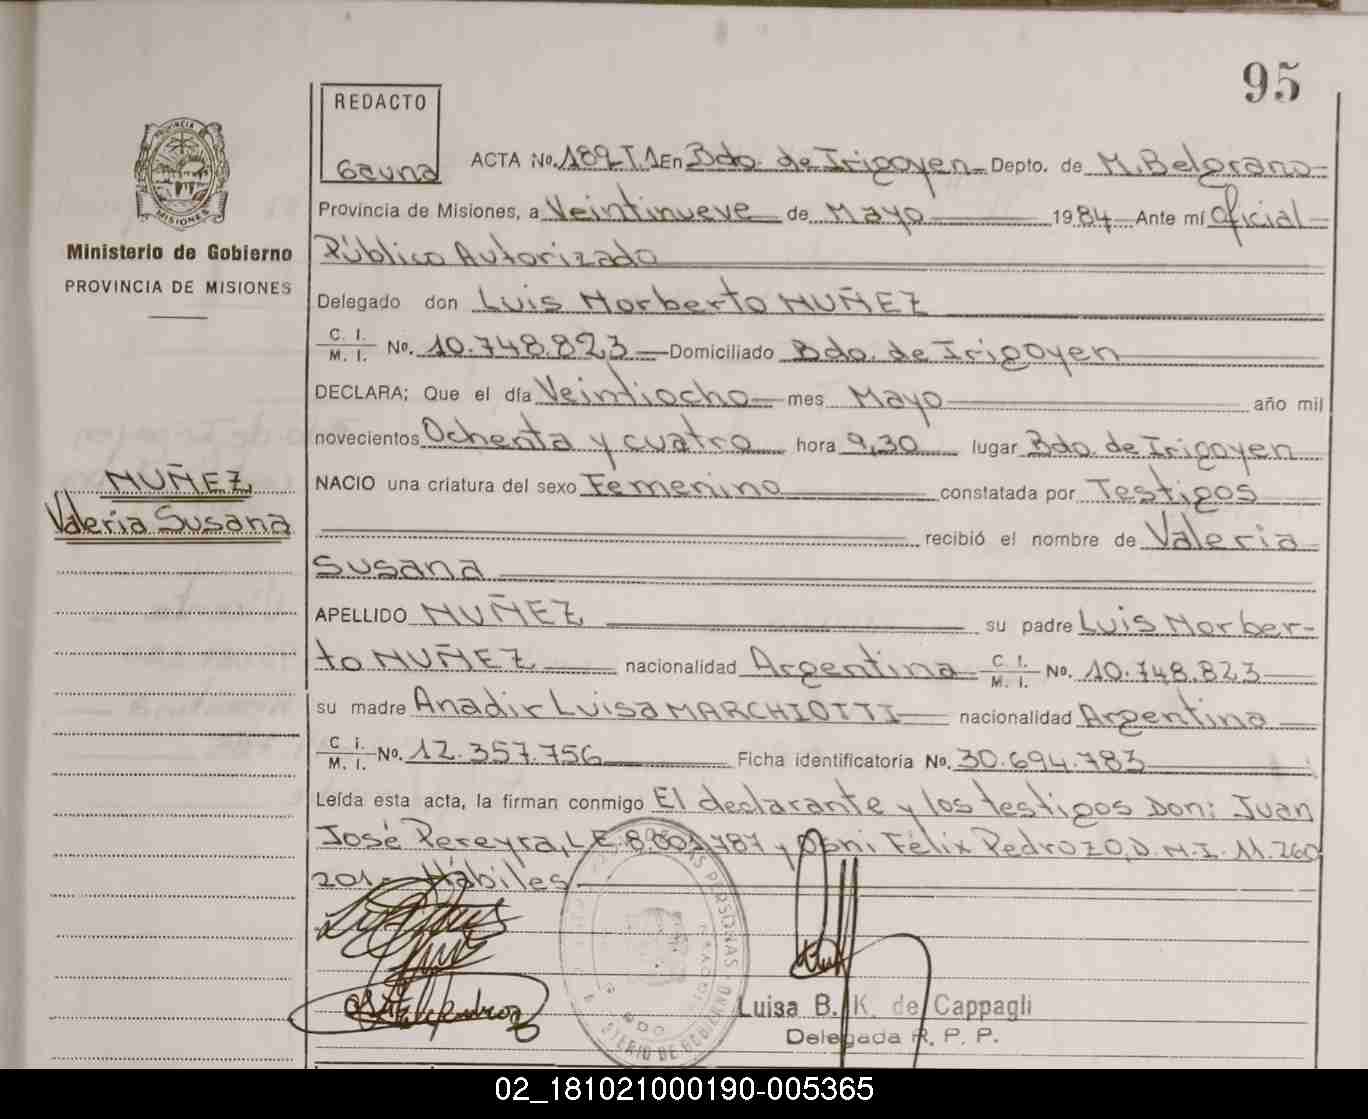 95
REDACTO
Gauna
PROVINCIA
MISIONES
Ministerio de Gobierno
PROVINCIA DE MISIONES
NUÑEZ
Valeria Susana
ACTA No. 189-T.1 En Bdo. de Irigoyen Depto. de M. Belgrano
Provincia de Misiones, a Veintinueve de Mayo 1984 Ante mí Oficial
Público Autorizado
Delegado don Luis Norberto NUÑEZ
C. I. M. I. No. 10.748.823 Domiciliado Bdo. de Irigoyen
DECLARA; Que el día Veintiocho mes Mayo año mil
novecientos Ochenta y cuatro hora 9,30 lugar Bdo. de Irigoyen
NACIO una criatura del sexo Femenino constatada por Testigos
recibió el nombre de Valeria
Susana
APELLIDO NUÑEZ su padre Luis Norber-
to NUÑEZ nacionalidad Argentina C. I. M. I. No. 10.748.823
su madre Anadir Luisa MARCHIOTTI nacionalidad Argentina
C. I. M. I. No. 12.357.756 Ficha identificatoria No. 30.694.783
Leída esta acta, la firman conmigo El declarante y los testigos Don: Juan
José Pereyra, L.E. 787 y Don: Félix Pedrozo, D.N.I. 11.260
201.- Hábiles
Luisa B. K. de Cappagli
Delegada R. P. P.
02_181021000190-005365